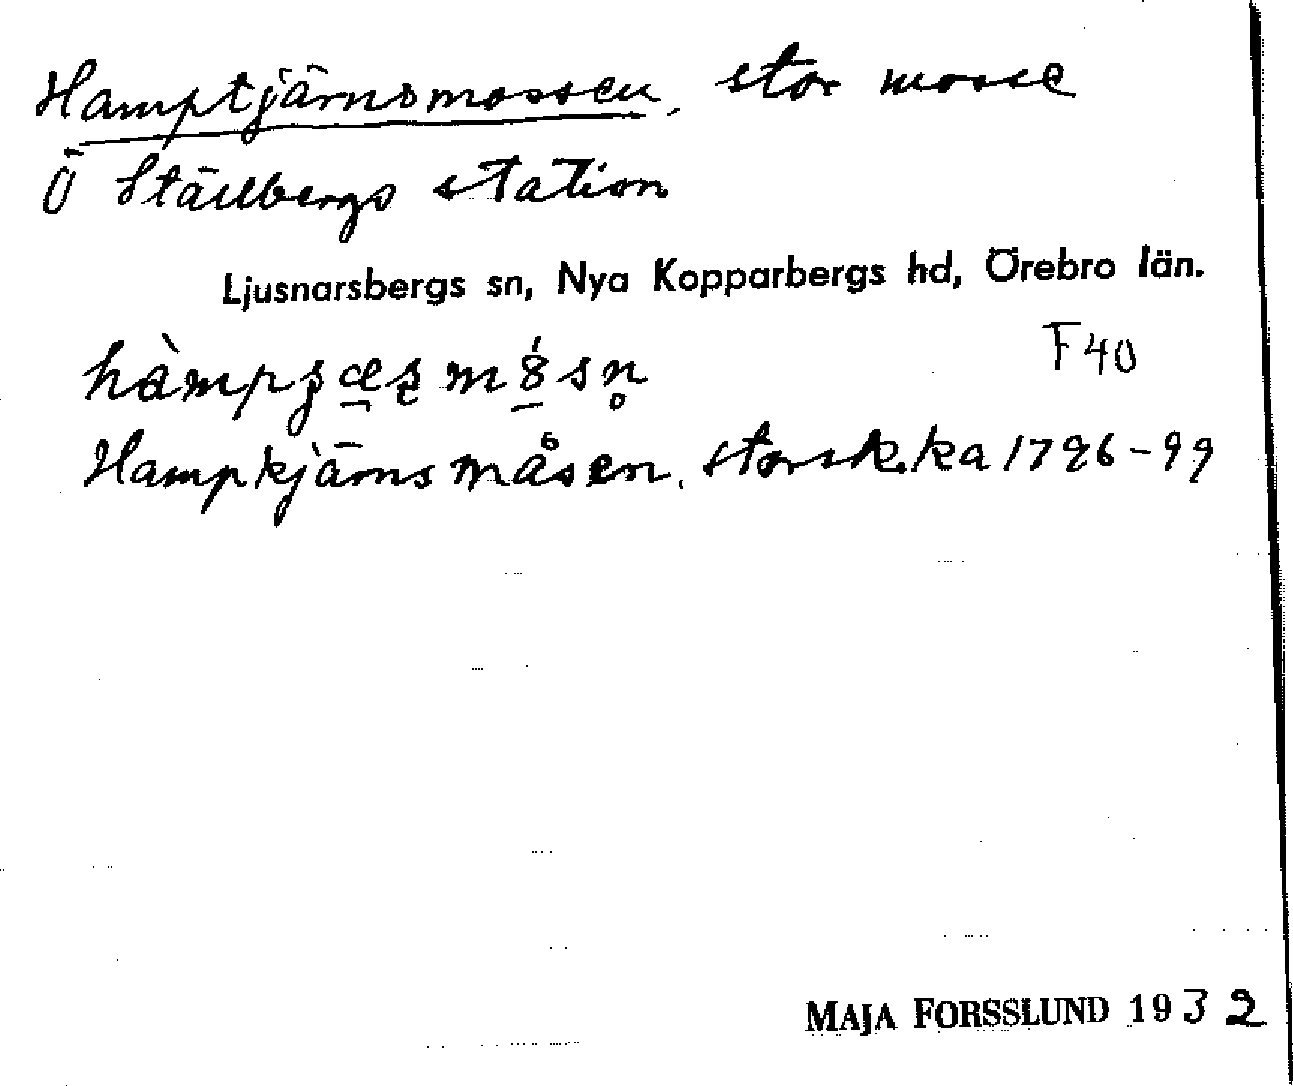 Hamptjärnsmossen, stor mosse
Ö Ställbergs station
Ljusnarsbergs sn, Nya Kopparbergs hd, Örebro län.
F40
Hampkjärns måsen, storsk.ka 1796-99
MAJA FORSSLUND 1932